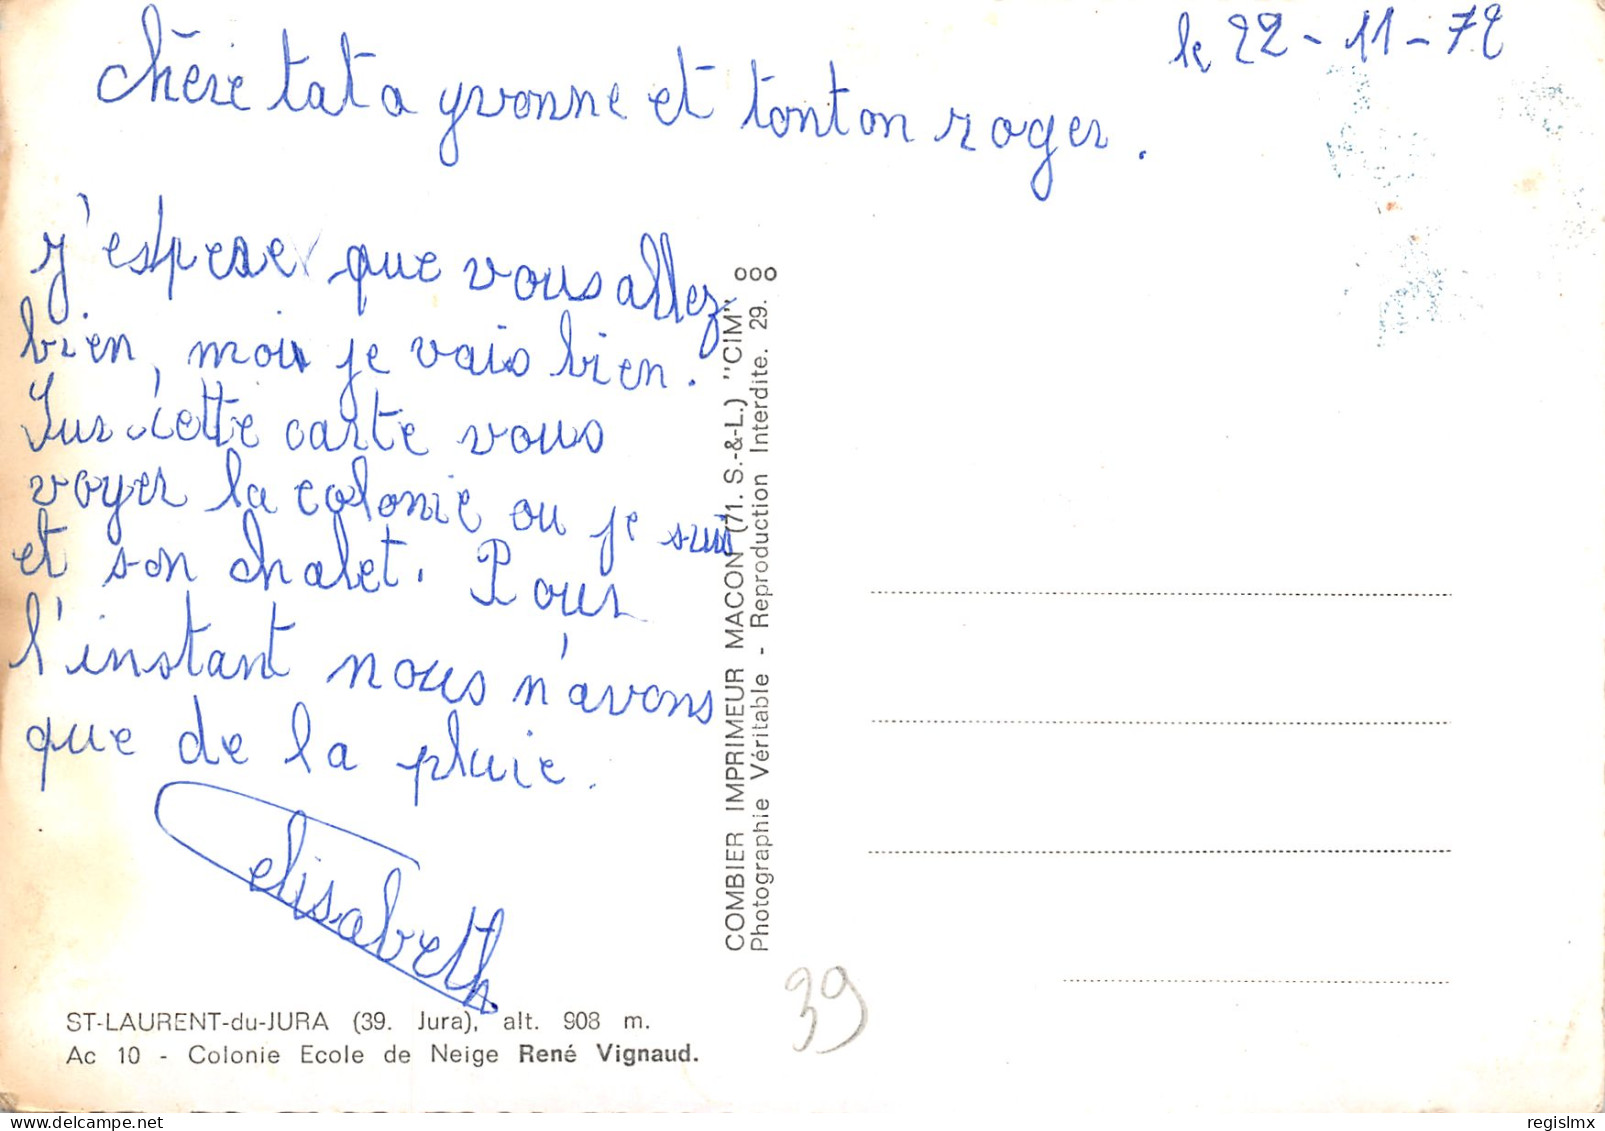 le 22-11-72
Chère tata yvonne et tonton roger.
j'espere que vous allez
bien, moi je vais bien.
Sur cette carte vous
voyer la colonie ou je suis
et son chalet. Pour
l'instant nous n'avons
que de la pluie.
elisabeth
ST-LAURENT-du-JURA (39. Jura), alt. 908 m.
Ac 10 - Colonie Ecole de Neige René Vignaud.
COMBIER IMPRIMEUR MACON (71. S.-&-L.) "CIM"
Photographie Véritable - Reproduction Interdite. 29. ooo
39
regislmx